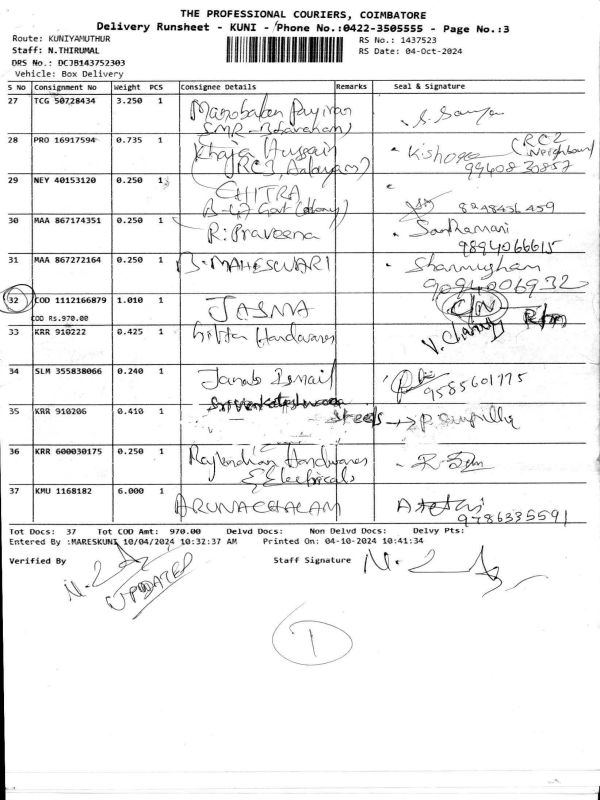 THE PROFESSIONAL COURIERS, COIMBATORE
Delivery Runsheet - KUNI - Phone No.:0422-3505555 - Page No.:3
Route: KUNIYAMUTHUR RS No.: 1437523
Staff: N.THIRUMAL RS Date: 04-Oct-2024
DRS No.: DCJB143752303
Vehicle: Box Delivery
S No Consignment No Weight PCS Consignee Details Remarks Seal & Signature
27 TCG 50728434 3.250 1
28 PRO 16917594 0.735 1 Khaja Hussain Kishore (RC2 Neighbour)
29 NEY 40153120 0.250 1 CHITRA
30 MAA 867174351 0.250 1 R. Praveena Santhamani
9894066615
31 MAA 867272164 0.250 1 B. MAHESWARI Shanmugham
9094006932
32 COD 1112166879 1.010 1 JASMA C/N
COD Rs.970.00
33 KRR 910222 0.425 1 Hardwares
34 SLM 355838066 0.240 1 Janab Ismail 9585601775
35 KRR 910206 0.410 1 Steels
36 KRR 600030175 0.250 1 Hardwares
& Electricals
37 KMU 1168182 6.000 1 ARUNACHALAM
9786335591
Tot Docs: 37 Tot COD Amt: 970.00 Delvd Docs: Non Delvd Docs: Delvy Pts:
Entered By :MARESKUNI 10/04/2024 10:32:37 AM Printed On: 04-10-2024 10:41:34
Verified By Staff Signature
UPDATED
1